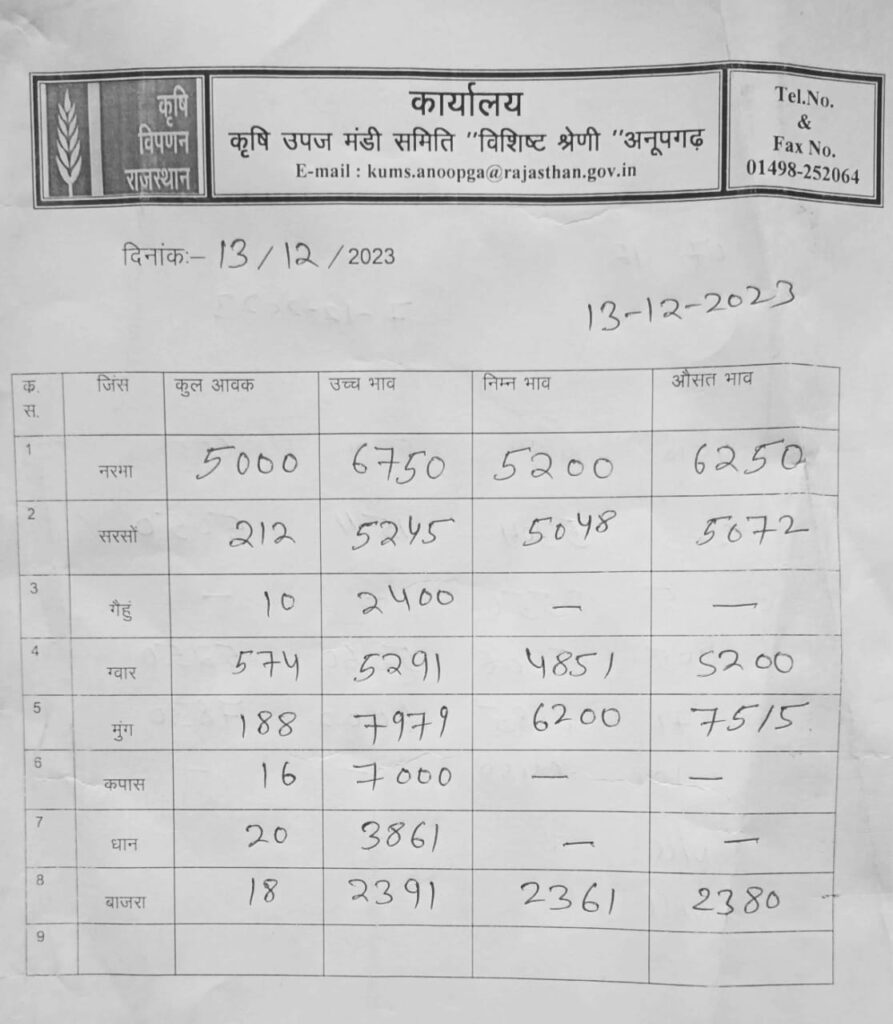 कृषि
विपणन
राजस्थान
कार्यालय
कृषि उपज मंडी समिति "विशिष्ट श्रेणी "अनूपगढ़
E-mail : kums.anoopga@rajasthan.gov.in
Tel.No.
&
Fax No.
01498-252064
दिनांक:– 13/12/2023
13-12-2023
क. स. जिंस कुल आवक उच्च भाव निम्न भाव औसत भाव
1 नरमा 5000 6750 5200 6250
2 सरसों 212 5245 5048 5072
3 गैहुं 10 2400 — —
4 ग्वार 574 5291 4851 5200
5 मुंग 188 7979 6200 7515
6 कपास 16 7000 — —
7 धान 20 3861 — —
8 बाजरा 18 2391 2361 2380
9